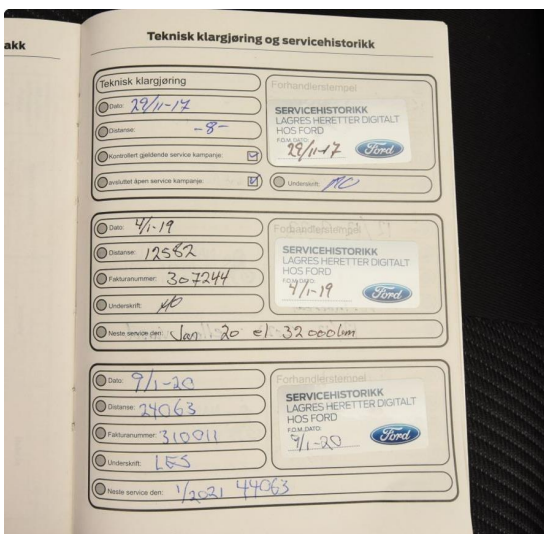 akk
Teknisk klargjøring og servicehistorikk
Teknisk klargjøring
Forhandlerstempel
Dato: 29/11-17
Distanse: -8-
Kontrollert gjeldende service kampanje:
avsluttet åpen service kampanje:
SERVICEHISTORIKK
LAGRES HERETTER DIGITALT
HOS FORD
F.O.M. DATO:
29/11-17
Ford
Underskrift:
Dato: 4/1-19
Distanse: 12582
Fakturanummer: 307244
Underskrift:
Neste service den: Jan 20 el. 32000km
Forhandlerstempel
SERVICEHISTORIKK
LAGRES HERETTER DIGITALT
HOS FORD
F.O.M. DATO:
4/1-19
Ford
Dato: 9/1-20
Distanse: 24063
Fakturanummer: 310011
Underskrift: LES
Neste service den: 1/2021 44063
Forhandlerstempel
SERVICEHISTORIKK
LAGRES HERETTER DIGITALT
HOS FORD
F.O.M. DATO:
9/1-20
Ford